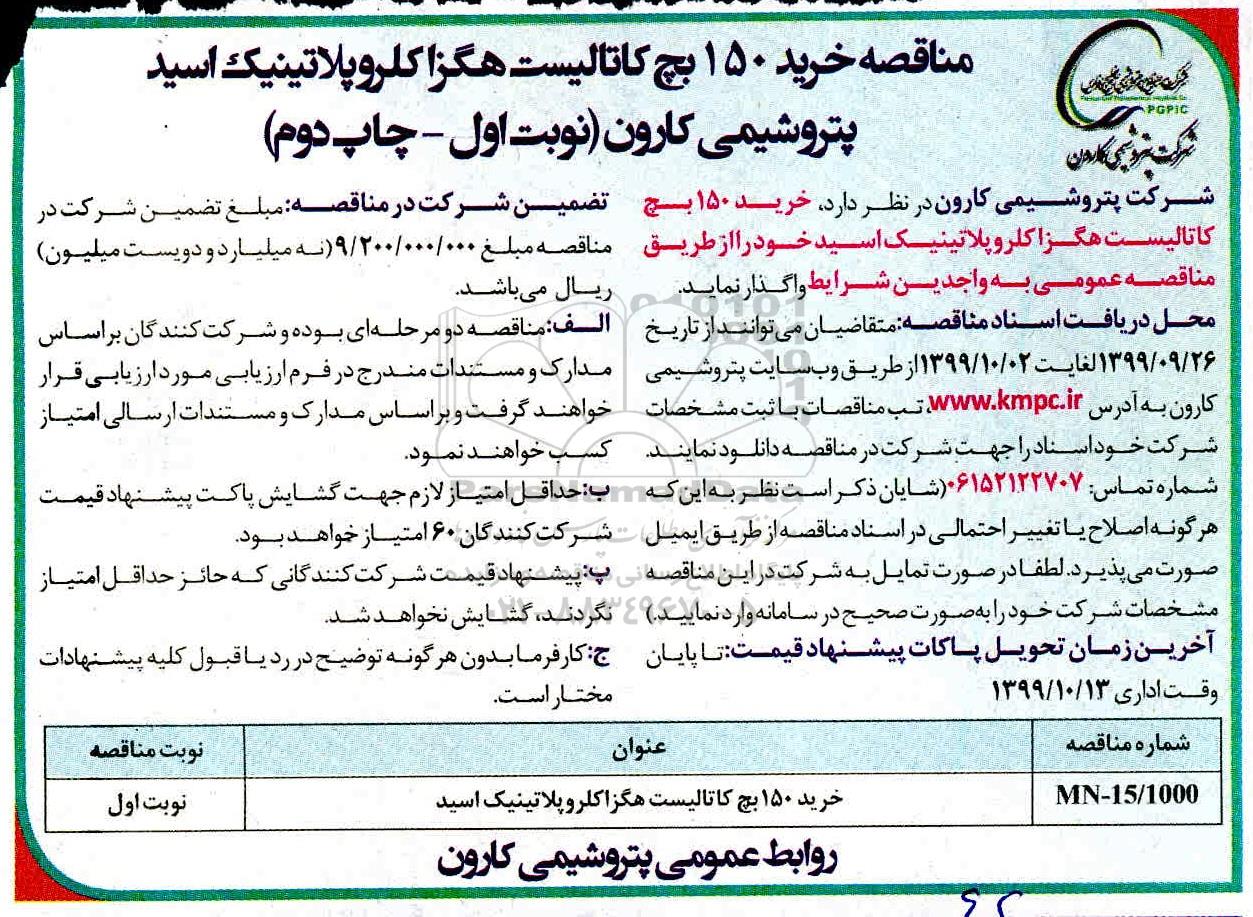 مناقصه خرید ۱۵۰ بچ کاتالیست هگزا کلرو پلاتینیک اسید
پتروشیمی کارون (نوبت اول - چاپ دوم)
PGPIC
شرکت پتروشیمی کارون
شرکت پتروشیمی کارون در نظر دارد، خرید ۱۵۰ بچ
کاتالیست هگزا کلرو پلاتینیک اسید خود را از طریق
مناقصه عمومی به واجدین شرایط واگذار نماید.
محل دریافت اسناد مناقصه: متقاضیان می‌توانند از تاریخ
۱۳۹۹/۰۹/۲۶ لغایت ۱۳۹۹/۱۰/۰۲ از طریق وب‌سایت پتروشیمی
کارون به آدرس www.kmpc.ir، تب مناقصات با ثبت مشخصات
شرکت خود اسناد را جهت شرکت در مناقصه دانلود نمایند.
شماره تماس: ۰۶۱۵۲۱۲۲۷۰۷ (شایان ذکر است نظر به این که
هرگونه اصلاح یا تغییر احتمالی در اسناد مناقصه از طریق ایمیل
صورت می‌پذیرد. لطفا در صورت تمایل به شرکت در این مناقصه
مشخصات شرکت خود را به‌صورت صحیح در سامانه وارد نمایید.)
آخرین زمان تحویل پاکات پیشنهاد قیمت: تا پایان
وقت اداری ۱۳۹۹/۱۰/۱۳
تضمین شرکت در مناقصه: مبلغ تضمین شرکت در
مناقصه مبلغ ۹/۲۰۰/۰۰۰/۰۰۰ (نه میلیارد و دویست میلیون)
ریال می‌باشد.
الف: مناقصه دو مرحله‌ای بوده و شرکت کنندگان بر اساس
مدارک و مستندات مندرج در فرم ارزیابی مورد ارزیابی قرار
خواهند گرفت و بر اساس مدارک و مستندات ارسالی امتیاز
کسب خواهند نمود.
ب: حداقل امتیاز لازم جهت گشایش پاکت پیشنهاد قیمت
شرکت کنندگان ۶۰ امتیاز خواهد بود.
پ: پیشنهاد قیمت شرکت کنندگانی که حائز حداقل امتیاز
نگردند، گشایش نخواهد شد.
ج: کارفرما بدون هرگونه توضیح در رد یا قبول کلیه پیشنهادات
مختار است.
شماره مناقصه عنوان نوبت مناقصه
MN-15/1000 خرید ۱۵۰ بچ کاتالیست هگزا کلرو پلاتینیک اسید نوبت اول
روابط عمومی پتروشیمی کارون